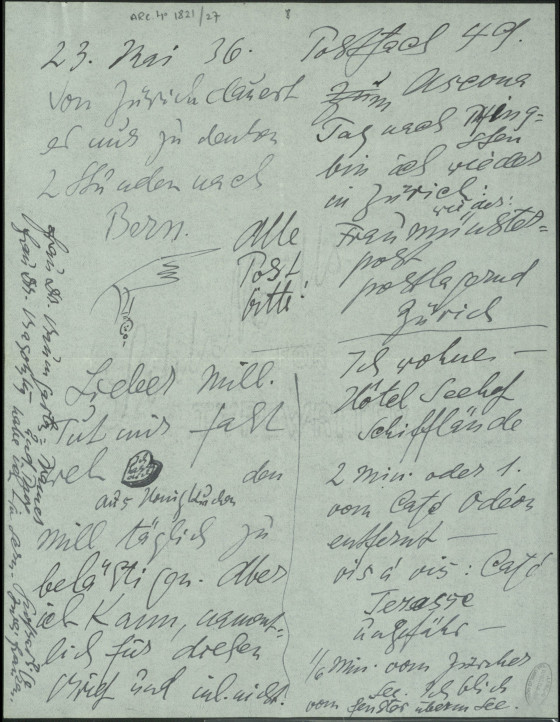 ARC. 4° 1821/27
8
23. Mai 36.
Von Zürich dauert
er nur zu denken
2 Stunden nach
Bern.
Alle
Post
bitte!
Lieber Mill.
Tut mir fast
weh
den
aus Honigkuchen
Mill täglich zu
belästigen. Aber
ich kann, nament-
lich für diesen
Brief und inl. nicht.
Postfach 49.
Zum Ascona
Tag nach Pfing-
sten
bin ich wieder
in Zürich:
wieder:
Fraumünster-
post
postlagernd
Zürich
Ich wohne —
Hôtel Seehof
Schifflände
2 Min. oder 1.
vom Café Odéon
entfernt —
vis à vis: Café
Terasse
ungefähr —
1/2 Min. vom Zürcher
See. Ich blick
vom Fenster überm See.
Frau Dr.
Frau Dr.